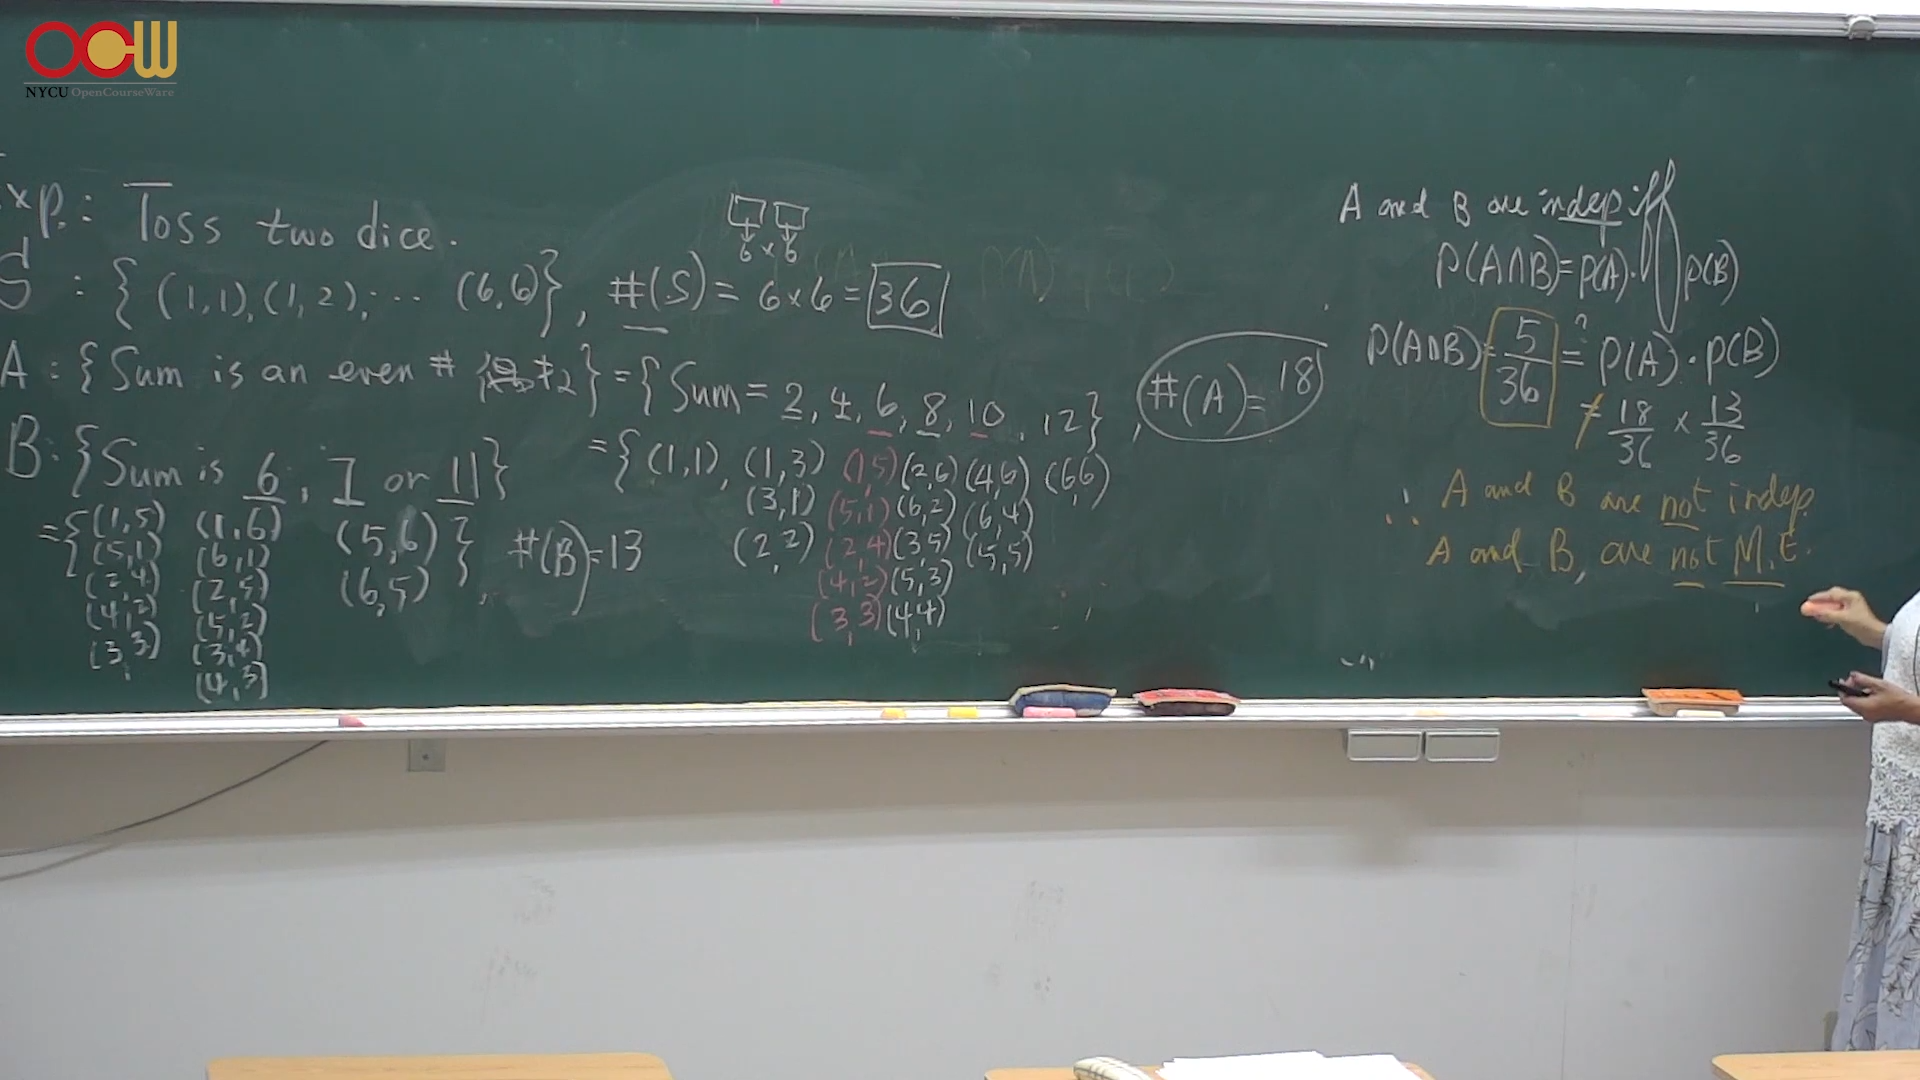 OCW
NYCU OpenCourseWare
xp.: Toss two dice.
6 × 6
S : {(1,1),(1,2),... (6,6)}, #(S) = 6×6 = 36
A : {Sum is an even #} = {Sum = 2, 4, 6, 8, 10, 12}, #(A) = 18
= {(1,1), (1,3) (1,5) (2,6) (4,6) (6,6)
(3,1) (5,1) (6,2) (6,4)
(2,2) (2,4) (3,5) (5,5)
(4,2) (5,3)
(3,3) (4,4)
B : {Sum is 6, 7 or 11}
= {(1,5) (1,6) (5,6)}, #(B)=13
(5,1) (6,1) (6,5)
(2,4) (2,5)
(4,2) (5,2)
(3,3) (3,4)
(4,3)
A and B are indep iff
P(A∩B) = P(A)·P(B)
P(A∩B) = 5/36 =? P(A)·P(B)
≠ 18/36 × 13/36
∴ A and B are not indep.
A and B, are not M.E.